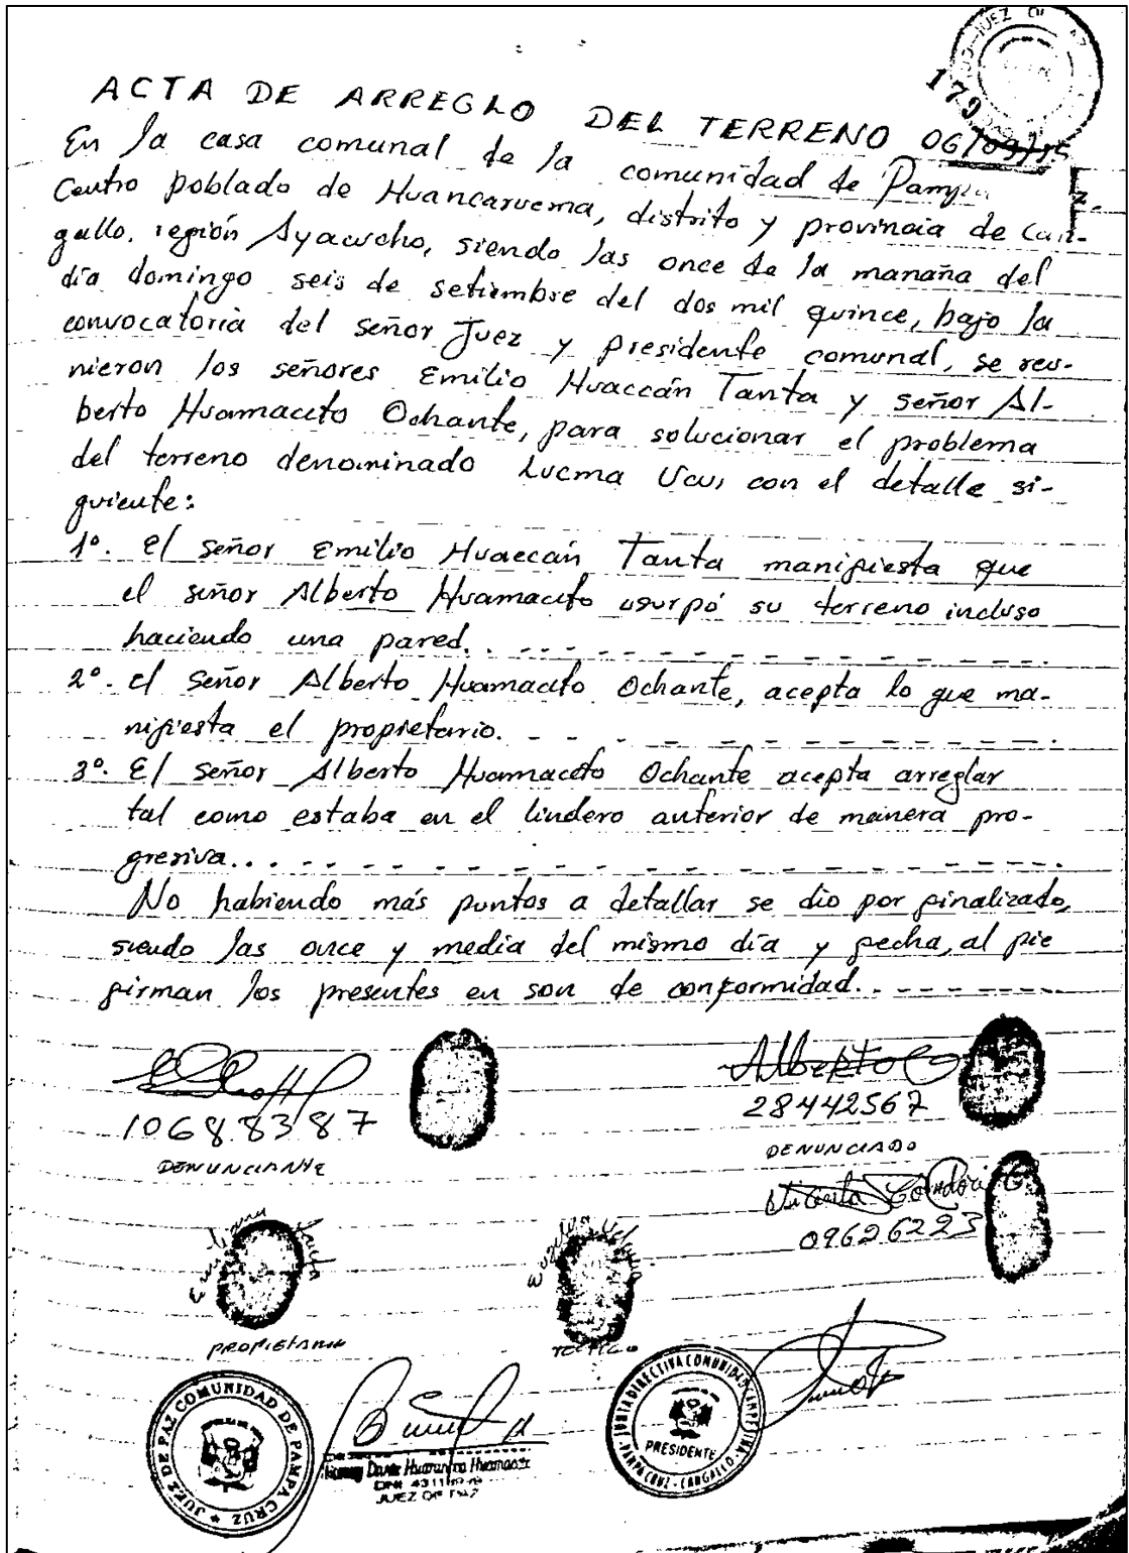 JUEZ DE PAZ
179
ACTA DE ARREGLO DEL TERRENO 06/09/15
En la casa comunal de la comunidad de Pampa
Centro poblado de Huancarucma, distrito y provincia de Can-
gallo, región Ayacucho, siendo las once de la mañana del
día domingo seis de setiembre del dos mil quince, bajo la
convocatoria del señor Juez y presidente comunal, se reu-
nieron los señores Emilio Huaccán Tanta y señor Al-
berto Huamaccto Ochante, para solucionar el problema
del terreno denominado Lucma Ucu, con el detalle si-
guiente:
1º. El señor Emilio Huaccán Tanta manifiesta que
el señor Alberto Huamaccto usurpó su terreno incluso
haciendo una pared.
2º. el señor Alberto Huamaccto Ochante, acepta lo que ma-
nifiesta el propietario.
3º. El señor Alberto Huamaccto Ochante acepta arreglar
tal como estaba en el lindero anterior de manera pro-
gresiva.
No habiendo más puntos a detallar se dio por finalizado,
siendo las once y media del mismo día y fecha, al pie
firman los presentes en son de conformidad.
Alberto
10688387
28442567
DENUNCIANTE
DENUNCIADO
Condori
09626223
PROPIETARIA
TESTIGO
JUEZ DE PAZ COMUNIDAD DE PAMPA CRUZ
Huamaccto
DNI
JUEZ DE PAZ
JUNTA DIRECTIVA COMUNIDAD CAMPESINA
PRESIDENTE
PAMPA CRUZ - CANGALLO